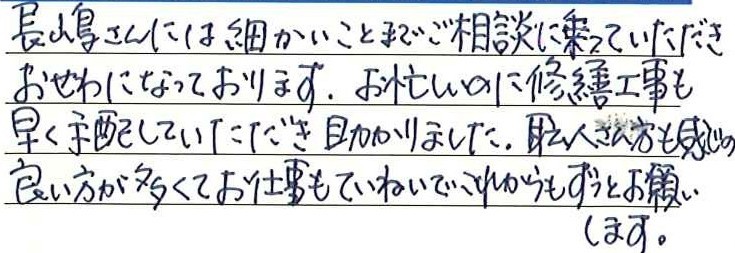 長嶋さんには細かいことまでご相談に乗っていただき
おせわになっております。お忙しいのに修繕工事も
早く手配していただき助かりました。職人さん方も感じの
良い方が多くてお仕事もていねいでこれからもずっとお願い
します。